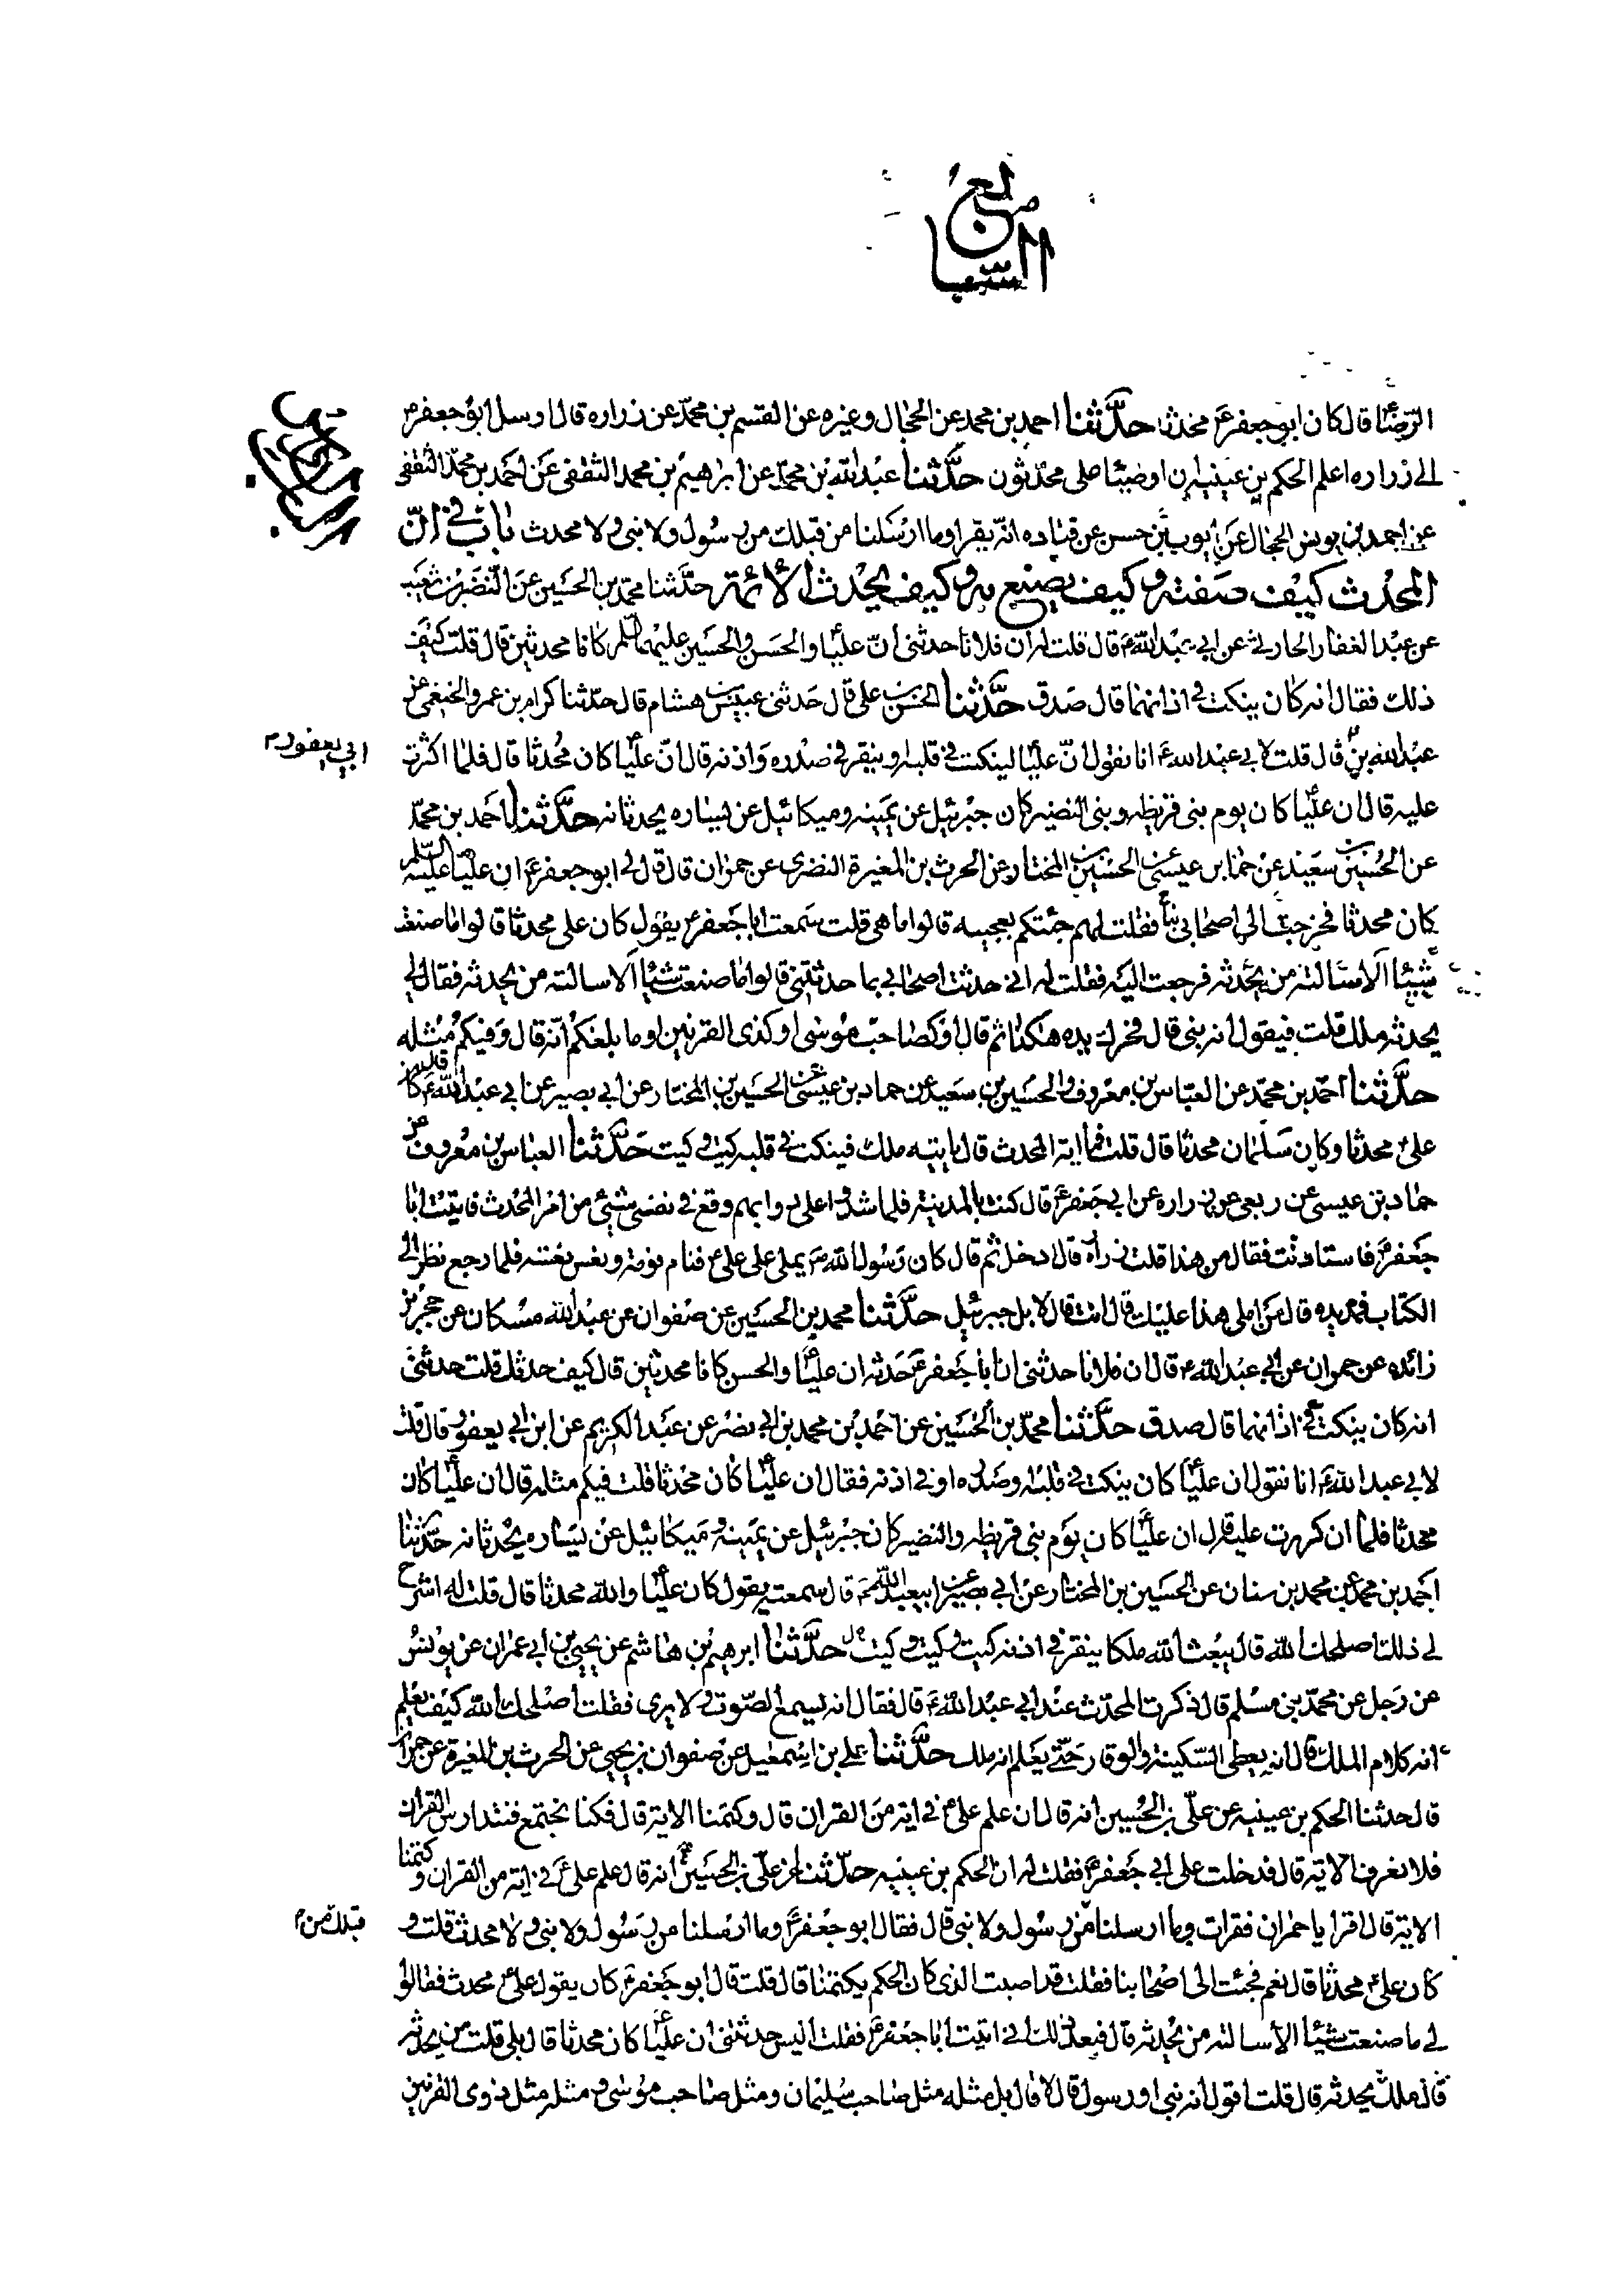 السابع
الرضا قال كان ابو جعفر ع محدثا حدّثنا احمد بن محمد عن الحجال وغيره عن القسم بن محمد عن زراره قال ارسل ابو جعفر ع
الى زراره اعلم الحكم بن عيينه ان اوصيئا على محدثون حدّثنا عبد الله بن محمد عن ابراهيم بن محمد الثقفى عن احمد بن محمد الثقفى
عن احمد بن يونس الحجال عن ايوب بن حسن عن قتاده انه يقرا وما ارسلنا من قبلك من رسول ولا نبى ولا محدث باب فى انّ
المحدث كيف صفته وكيف يصنع به وكيف يحدث الأئمة حدّثنا محمد بن الحسين عن النضر بن شعيب
عن عبد الغفار الحارثى عن ابى عبد الله ع قال قلت له ان فلانا حدثنى انّ عليّا والحسن والحسين عليهما السلم كانا محدثين قال قلت كيف
ذلك فقال انه كان ينكت فى اذانهما قال صدق حدّثنا الحسن بن على قال حدثنى عبيس بن هشام قال حدّثنا كرام بن عمرو الخثعمى عن
عبد الله بن قال قلت لابى عبد الله ع انا نقول انّ عليّا لينكت فى قلبه وينقر فى صدره واذنه قال انّ عليّا كان مُحدثا قال فلما اكثرت
ابى يعفور م
عليه قال ان عليّا كان يوم بنى قريظه وبنى النضير كان جبرئيل عن يمينه وميكائيل عن يساره يحدثانه حدّثنا احمد بن محمد
عن الحسين بن سعيد عن حماد بن عيسى عن الحسين بن المختار عن الحرث بن المغيرة النضرى عن حمران قال قال لى ابو جعفر ع ان عليّا عليه السلم
كان محدثا فخرجت الى اصحابى فقلت لهم جئتكم بعجيبه قالوا ما هى قلت سمعت ابا جعفر ع يقول كان على محدثا قالوا ما صنعت
شيئا الا سالته من يحدثه فرجعت اليه فقلت له انى حدثت اصحابى بما حدثتنى قالوا ما صنعت شيئا الا سالته من يحدثه فقال لى
يحدثه ملك قلت فيقول انه نبى قال فحرك يده هكذا ثم قال او كصاحب موسى او كذى القرنين او ما بلغكم انّه قال وفيكم مثله
حدّثنا احمد بن محمد عن العباس بن معروف والحسين بن سعيد عن حماد بن عيسى عن الحسين بن المختار عن ابى بصير عن ابى عبد الله ع قال كان
على محدثا وكان سلمان محدثا قال قلت فما اية المحدث قال ياتيه ملك فينكت فى قلبه كيت وكيت حدّثنا العباس بن معروف عن
حماد بن عيسى عن ربعى عن زراره عن ابى جعفر ع قال كنت بالمدينة فلما شدوا على دوابهم وقع فى نفسى شىء من امر المحدث فاتيت ابا
جعفر ع فاستاذنت فقال من هذا قلت زراره قال ادخل ثم قال كان رسول الله ص يملى على على ع فنام نومة ونعس نعسة فلما رجع نظر الى
الكتاب فمد يده قال من املى هذا عليك قال انت قال لا بل جبرئيل حدّثنا محمد بن الحسين عن صفوان عن عبد الله مسكان عن حجر بن
زائده عن حمران عن ابى عبد الله ع قال ان فلانا حدثنى ان ابا جعفر ع حدثه ان عليّا والحسن كانا محدثين قال كيف حدثك قلت حدثنى
انه كان ينكت فى اذانهما قال صدق حدّثنا محمد بن الحسين عن احمد بن محمد بن ابى نصر عن عبد الكريم عن ابن ابى يعفور قال قلت
لابى عبد الله ع انا نقول ان عليّا كان ينكت فى قلبه وصدره او فى اذنه فقال ان عليّا كان محدثا قلت فيكم مثله قال ان عليّا كان
محدثا فلما ان كررت عليه قال ان عليّا كان يوم بنى قريظه والنضير كان جبرئيل عن يمينه وميكائيل عن يساره يحدثانه حدّثنا
احمد بن محمد عن محمد بن سنان عن الحسين بن المختار عن ابى بصير عن ابيعبد الله ع قال سمعته يقول كان عليّا والله محدثا قال قلت له اشرح
لى ذلك اصلحك الله قال يبعث الله ملكا ينقر فى اذنه كيت وكيت وكيت حدّثنا ابرهيم بن هاشم عن يحيى بن ابى عمران عن يونس
عن رجل عن محمد بن مسلم قال ذكرت المحدث عند ابى عبد الله ع قال فقال انه يسمع الصوت ولا يرى فقلت اصلحك الله كيف يعلم
انه كلام الملك قال انه يعطى السكينة والوقار حتّى يعلم انه ملك حدّثنا على بن اسمعيل عن صفوان بن يحيى عن الحرث بن المغيرة عن حمران
قال حدثنا الحكم بن عيينه عن علىّ بن الحسين انه قال ان علم على ع فى اية من القران قال وكتمنا الاية قال فكنا نجتمع فنتدارس القران
فلا نعرف الاية قال فدخلت على ابى جعفر ع فقلت له ان الحكم بن عيينه حدّثنا عن علىّ بن الحسين ع انه قال علم على ع فى اية من القران وكتمنا
الاية قال اقرا يا حمران فقرات وما ارسلنا من رسول ولا نبى قال فقال ابو جعفر ع وما ارسلنا من رسول ولا نبى ولا محدث قلت و
قبلك من م
كان على ع محدثا قال نعم فجئت الى اصحابنا فقلت قد اصبت الذى كان الحكم يكتمنا قال قلت قال ابو جعفر ع كان يقول على ع محدث فقالوا
لى ما صنعت شيئا الا سالته من يحدثه قال فبعد ذلك انى اتيت ابا جعفر ع فقلت اليس حدثتنى ان عليّا كان محدثا قال بلى قلت من يحدثه
قال ملك يحدثه قال قلت اقول انه نبى او رسول قال لا قال بل مثله مثل صاحب سليمان ومثل صاحب موسى ومثله مثل ذوى القرنين